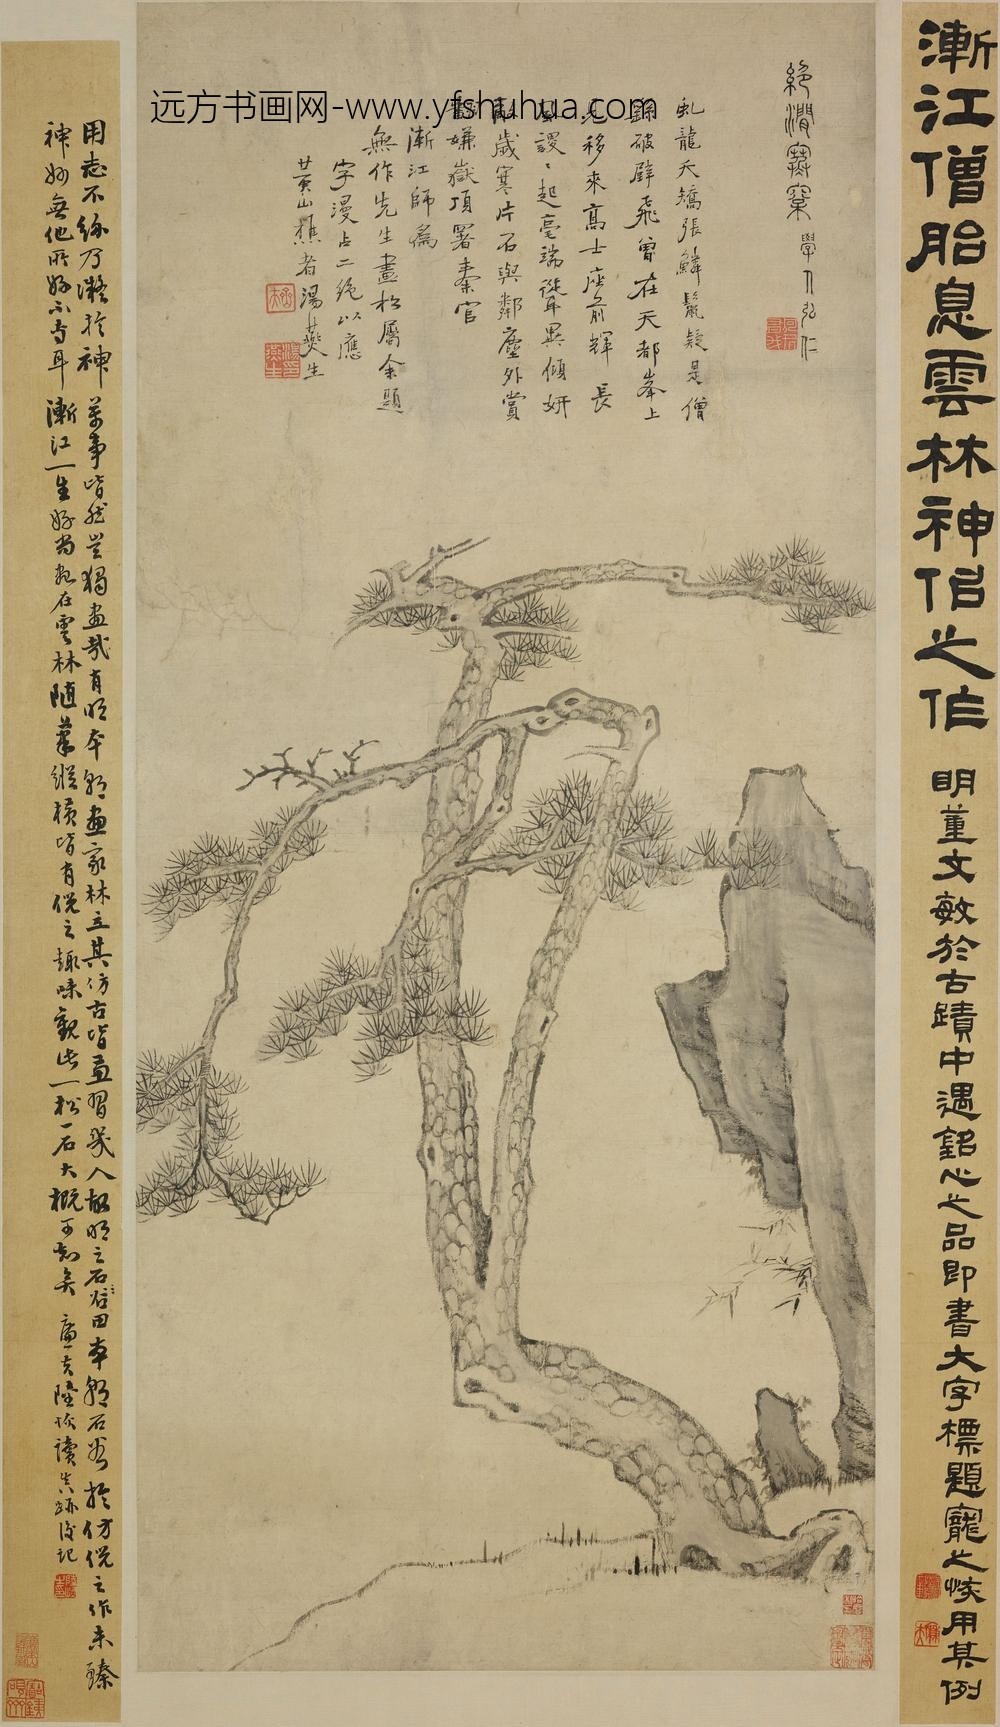 漸江僧胎息雲林神侣之作
明董文敏於古蹟中遇銘心之品即書大字標題寵之恢用其例
絕澗寒窠 學人弘仁
虬龍夭矯張鱗鬣疑是僧
破壁飛曾在天都峯上
移來高士座前輝 長
謖謖起亳端從耳異傾妍
歲寒片石與鄰塵外賞
嫌嶽頂署秦官
漸江師為
無作先生畫松屬余題
字漫占二絕以應
黃山樵者湯燕生
远方书画网-www.yfshuhua.com
用志不紛乃凝於神 萬事皆然豈獨畫哉有明本朝畫家林立其仿古皆畫習幾人故明之石田本朝石谷於仿倪之作未臻
神妙無他所好不專耳 漸江一生好尚都在雲林隨筆縱橫皆有倪之趣味觀此一松一石大概可知矣 廉夫陸恢讀真跡後記